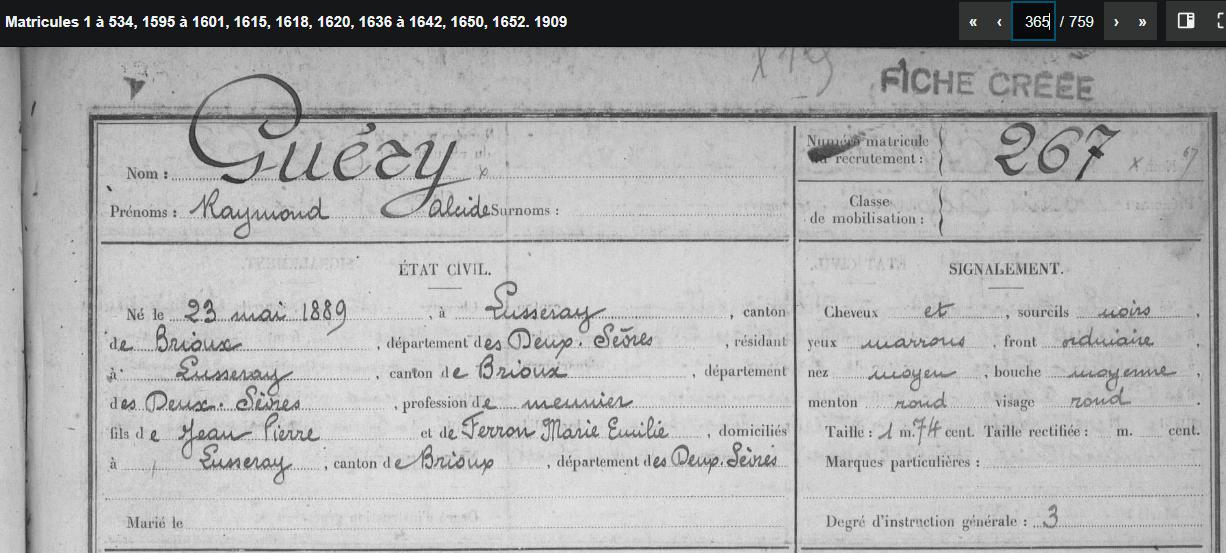 Matricules 1 à 534, 1595 à 1601, 1615, 1618, 1620, 1636 à 1642, 1650, 1652. 1909
« ‹ 365 / 759 › »
FICHE CRÉÉE
Nom : Guéry
Prénoms : Raymond Alcide Surnoms :
Numéro matricule du recrutement : 267
Classe de mobilisation :
ÉTAT CIVIL.
Né le 23 mai 1889, à Lusseray, canton
de Brioux, département des Deux-Sèvres, résidant
à Lusseray, canton de Brioux, département
des Deux-Sèvres, profession de meunier
fils de Jean Pierre et de Ferron Marie Emilie, domiciliés
à Lusseray, canton de Brioux, département des Deux-Sèvres
Marié le
SIGNALEMENT.
Cheveux et, sourcils noirs,
yeux marrons, front ordinaire,
nez moyen, bouche moyenne,
menton rond visage rond.
Taille : 1 m. 74 cent. Taille rectifiée : m. cent.
Marques particulières :
Degré d'instruction générale : 3